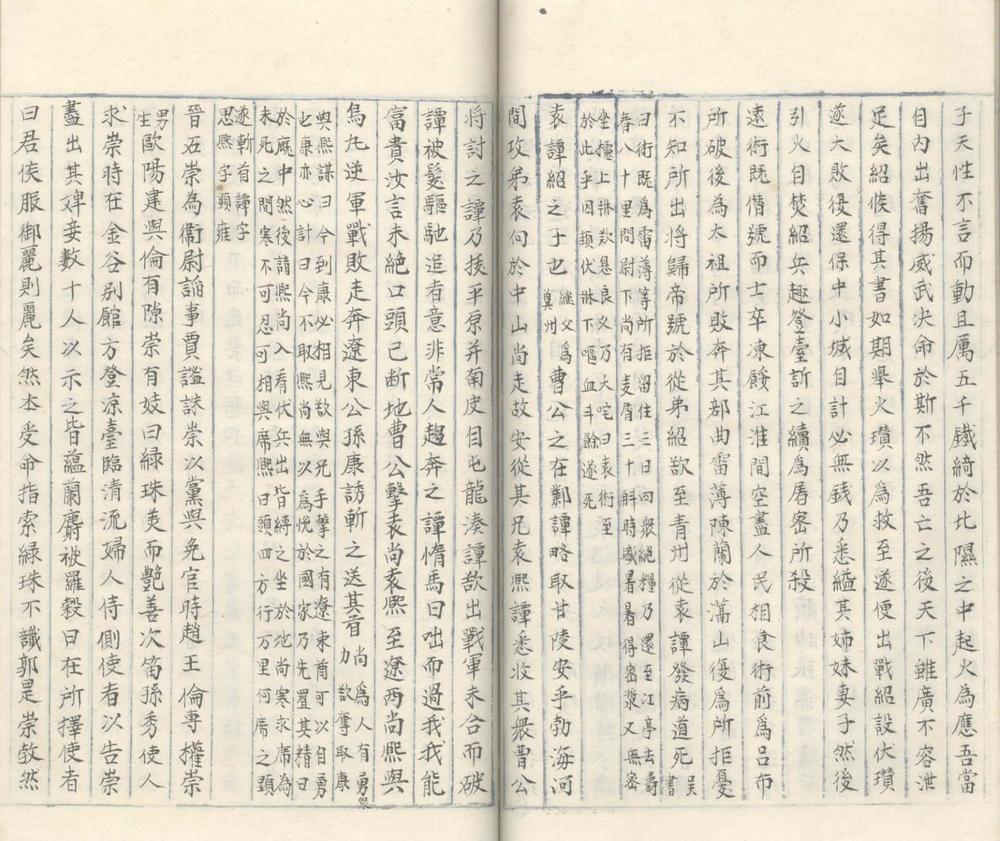 子天性不言而動且厲五千鐵綺於北隰之中起火為應吾當
自內出奮揚威武決命於斯不然吾亡之後天下雖廣不容汝
足矣紹候得其書如期舉火瓚以為救至遂便出戰紹設伏瓚
遂大敗復還保中小城自計必無錢乃悉縊其姉妹妻子然後
引火自焚紹兵趣登臺斬之續為屠宻所殺
袁術既僭號而士卒凍餒江淮間空盡人民相食術前為呂布
所破後為太祖所敗奔其部曲雷薄陳蘭於灊山復為所拒憂
不知所出將歸帝號於從弟紹欲至青州從袁譚發病道死 吴書
曰術既為雷薄等所拒留住三日四衆絕糧乃還至江亭去壽
春八十里問尉下尚有麦屑三十斛時盛暑暑得宻漿又無宻
坐櫺上牀歎息良乆乃大咤曰袁術至
於此乎因頓伏牀下嘔血斗餘遂死
袁譚紹之子也 継父為兾州 曹公之在鄴譚略取甘陵安平勃海河
間攻弟袁尚於中山尚走故安從其兄袁熙譚悉收其衆曹公
將討之譚乃拔平原并南皮自屯龍湊譚欲出戰軍未合而破
譚被髮驅馳追者意非常人趨奔之譚惰馬曰咄而過我我能
富貴汝言未絕口頭已断地曹公擊袁尚袁熙至遼西尚熙與
烏九逆軍戰敗走奔遼東公孫康誘斬之送其首 尚為人有勇傑力欲奪取康
與熙謀曰今到康必相見欲與兄手擊之有遼東商可以自勇
也康亦心計曰今不取熙尚無以為恱於國家乃先置其精曰
於廐中然後請熙尚入看伏兵出皆縳之坐於地尚寒求席為
未死之間寒不可忍可相與席熙曰頭四方行万里何席之頭
遂斬首譚字
思熙字顕雍
晉石崇為衞尉謟事賈謐誅崇以黨與免官時趙王倫專權崇
男生歐陽建與倫有隙崇有妓曰緑珠美而艷善次笛孫秀使人
求崇時在金谷别館方登凉臺臨清流婦人侍側使者以告崇
盡出其婢妾數十人以示之皆蘊蘭麝被羅縠曰在所擇使者
曰君侯服御麗則麗矣然本受命指索緑珠不識郭是崇敎然